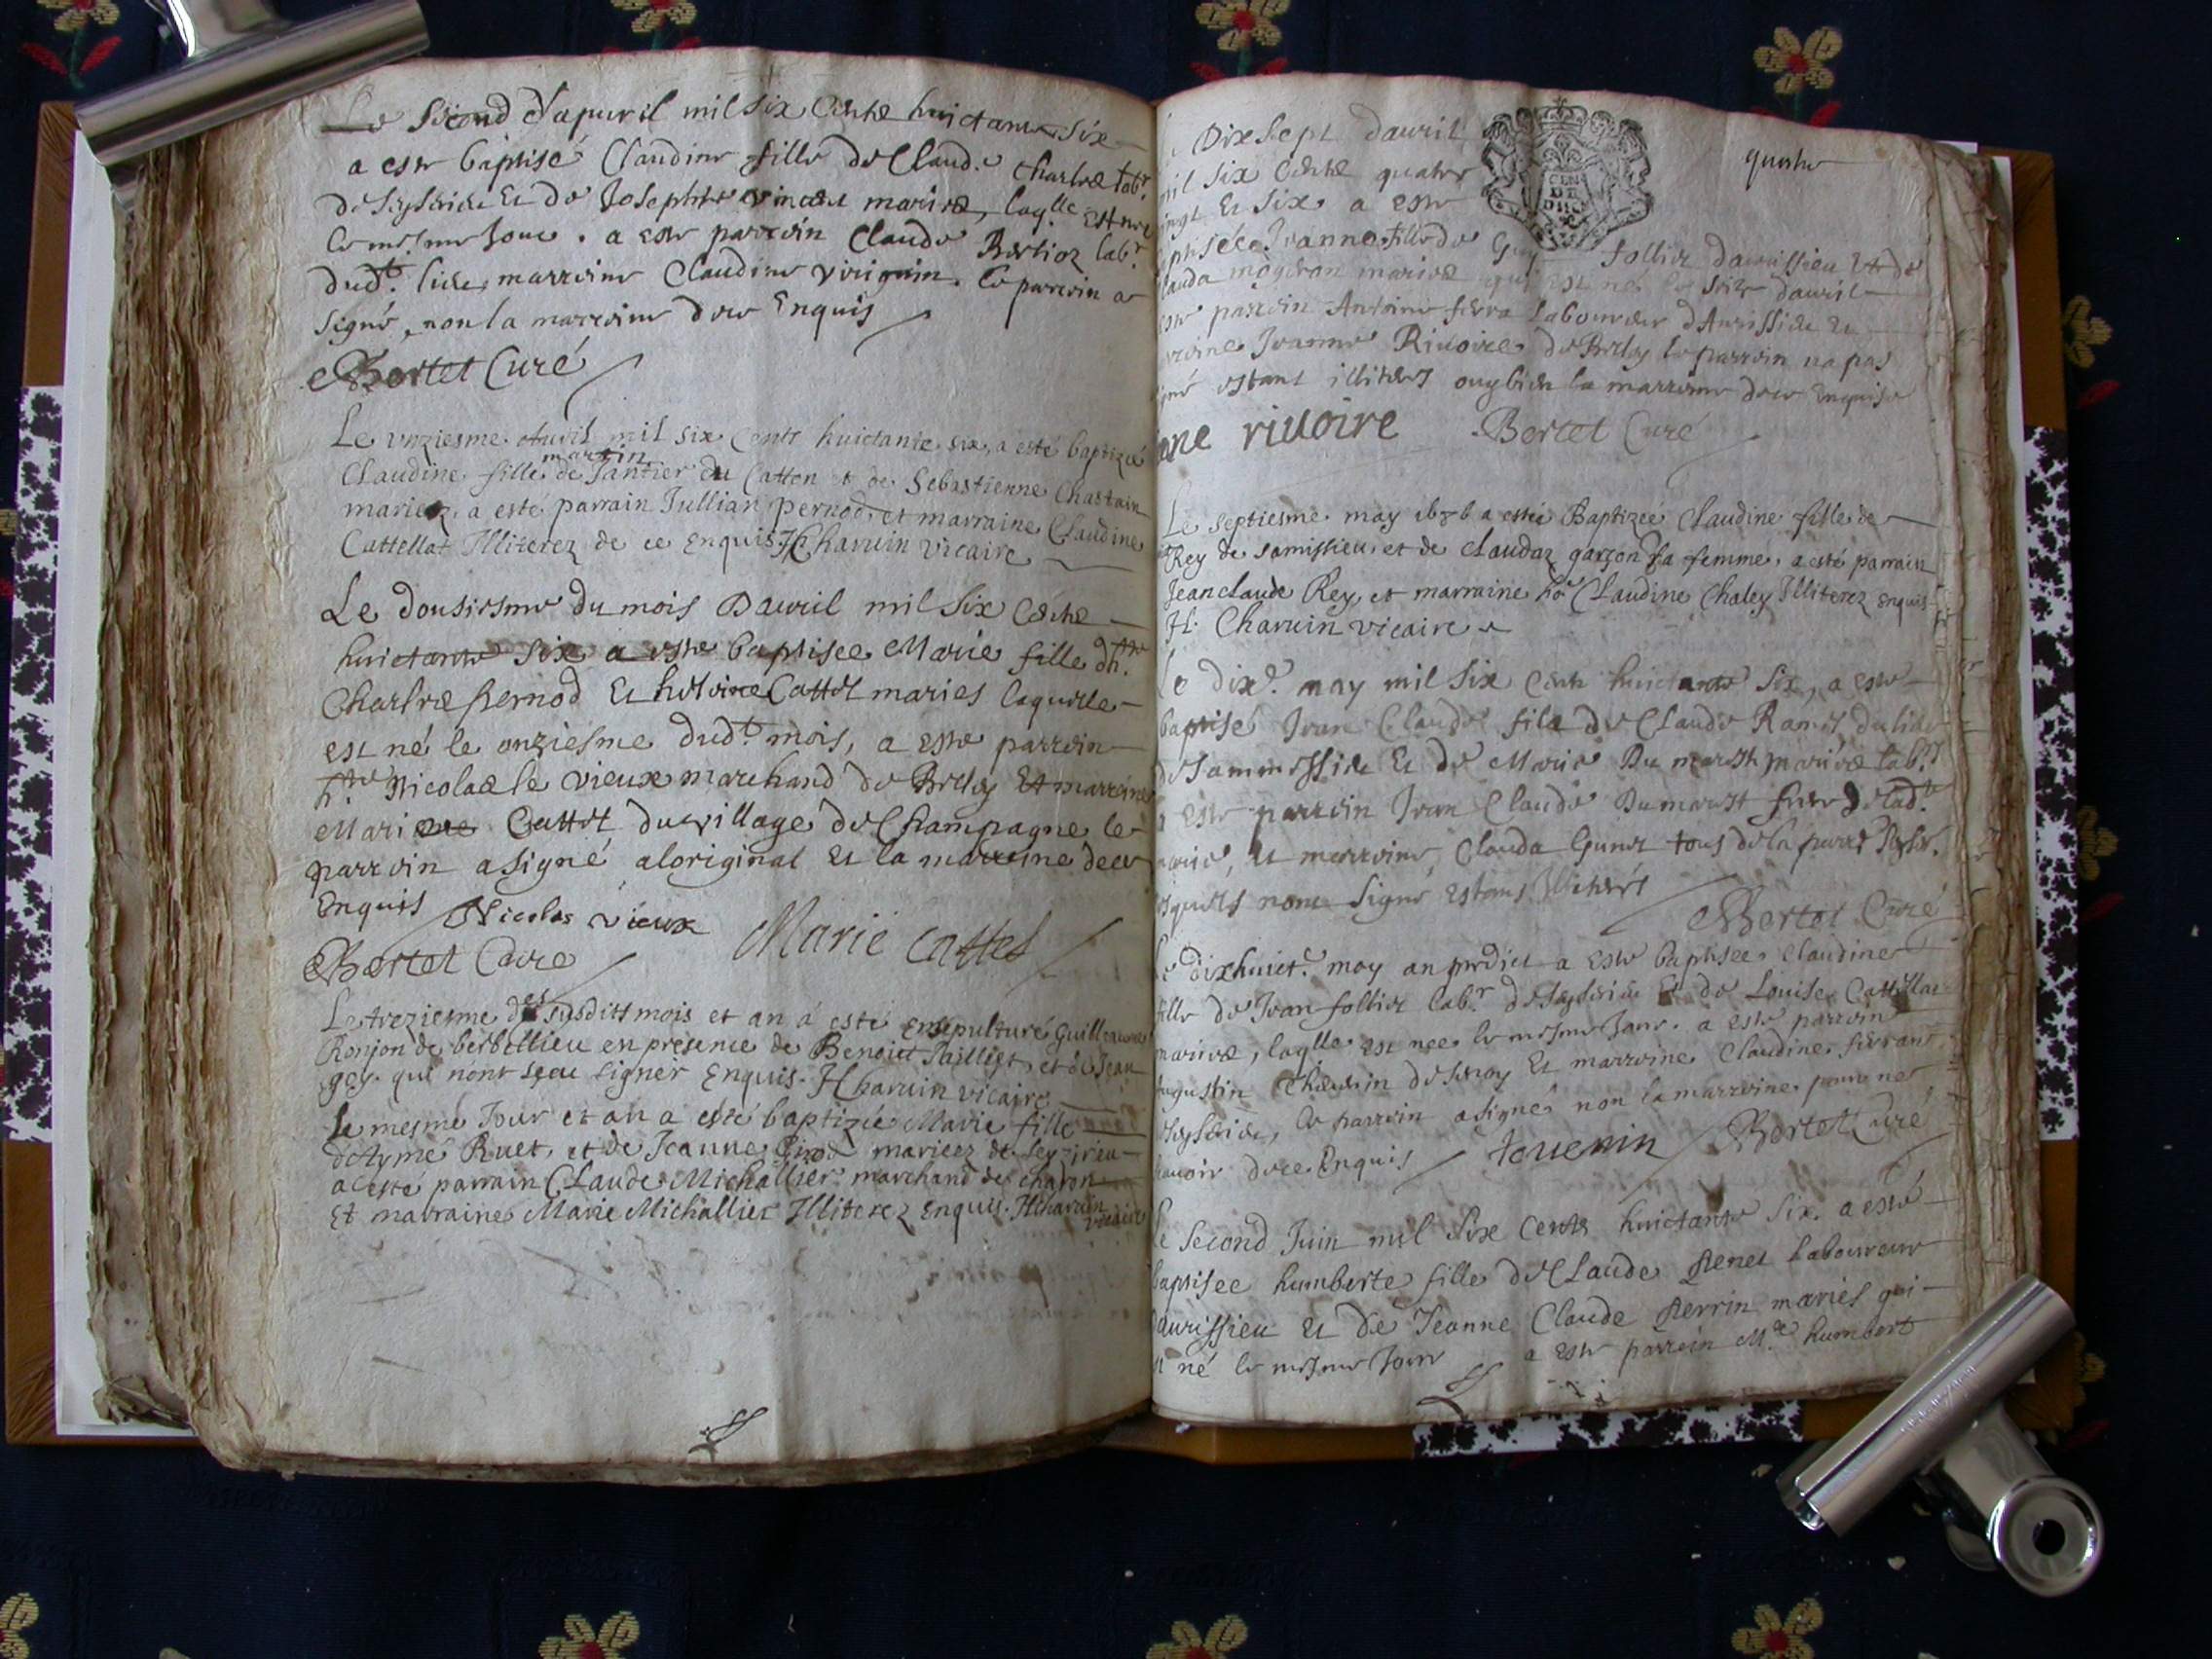 Le second d'apvril mil six cents huictante six
a este baptisé Claudine fille de Claude Charles labr
de et de Josephte Vincent mariés, laqlle est née
le mesme jour. a este parrein Claude Berlioz labr
dudt lieu, marreine Claudine Viriguin. le parrein a
signé, non la marreine de ce enquis
Bertet Curé
Le unziesme Auvil mil six cents huictante six, a esté baptizée
martin
Claudine fille de Jantier du Catton et de Sebastienne Chastain
mariez, a esté parrain Jullian Pernod, et marraine Claudine
Cattellat Illiterez de ce enquis H Charuin vicaire
Le dousiesme du mois Dauril mil six cents
huictante six a este baptisee Marie fille
Charles Pernod et Cattet mariés laquelle
est né le onziesme dudt mois, a este parrein
Nicolas le vieux marchand de Belley et marreine
Marie Cattet du village de Champagne le
parrein a signé a loriginal et la marreine de ce
enquis Nicolas vieux
Marie Cattet
Bertet Curé
Le trezieme des susdits mois et an a esté ensepulturé Guillaume
Ronjon de berbellieu en présence de Benoict Jailliet, et de Jean
gey qui nont sceu signer Enquis. H Charuin vicaire
Le mesme Jour et an a esté baptizée Marie fille
d'Aymé Ruet, et de Jeanne mariez de Seyzirieu
a esté parrain Claude Michallier marchand de charon
Et marraine Marie Michallier Illiterez enquis. H Charuin
vicaire
Dixsept dauril
mil six cents quatre
vingt et six a este
quatre
Jeanne fille de Guy follier daurissieu et de
Clauda mariés qui est né le seize dauril
este parrein Antoine ferra laboureur d'Aurissieu et
Jeanne Riuoire de Belley le parrein na pas
signé estant illiteré ouy bien la marreine de ce enquise
riuoire Bertet Curé
Le septiesme may 1686 a esté Baptizée Claudine fille de
Rey de samissieu, et de claudaz garçon sa femme, a esté parrain
Jeanclaude Rey, et marraine Claudine Chaley Illiterez enquis
H. Charuin vicaire
Le dixe may mil six cents huictante six, a este
baptisé Jean Claude fils de Claude Ramet du lieu
de Sammissieu et de Marie Du marest mariés labrs
a este parrein Jean Claude Dumarest frere de ladte
marie, et marreine Clauda tous de la parr
lesquels nont signé estans illiterés
Bertet Curé
Le dixhuicte may an predict a este baptisee Claudine
fille de Jean follier labr de et de Louise Cattillat
mariés, laqlle est nee le mesme jour. a este parrein
Augustin de et marreine Claudine ferrant
le parrein a signé non la marreine pour ne
scauoir de ce enquis Bertet Curé
Le second Juin mil six cents huictante six a esté
baptisee humberte fille de Claude Penet laboureur
daurissieu et de Jeanne Claude Perrin mariés qui
est né le mesme jour a este parrein Me humbert